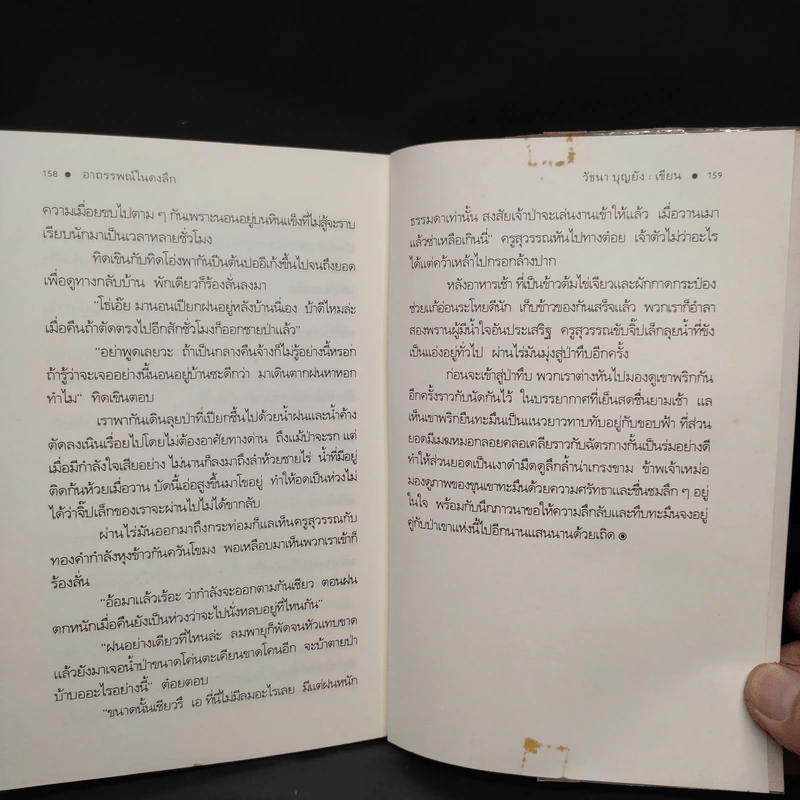 158 ● อาถรรพณ์ในดงลึก
ความเมื่อยขบไปตาม ๆ กันเพราะนอนอยู่บนหินแข็งที่ไม่สู้จะราบ
เรียบนักมาเป็นเวลาหลายชั่วโมง
ทิดเขินกับทิดโอ่งพากันปีนต้นปออีเก้งขึ้นไปจนถึงยอด
เพื่อดูทางกลับบ้าน พักเดียวก็ร้องลั่นลงมา
"โธ่เอ๊ย มานอนเปียกฝนอยู่หลังบ้านนี่เอง บ้าดีไหมล่ะ
เมื่อคืนถ้าตัดตรงไปอีกสักชั่วโมงก็ออกชายป่าแล้ว"
"อย่าพูดเลยวะ ถ้าเป็นกลางคืนจ้างก็ไม่รู้อย่างนี้หรอก
ถ้ารู้ว่าจะเจออย่างนี้นอนอยู่บ้านซะดีกว่า มาเดินตากฝนหาหอก
ทำไม" ทิดเขินตอบ
เราพากันเดินลุยป่าที่เปียกชื้นไปด้วยน้ำฝนและน้ำค้าง
ตัดลงเนินเรื่อยไปโดยไม่ต้องอาศัยทางด่าน ถึงแม้ป่าจะรก แต่
เมื่อมีกำลังใจเสียอย่าง ไม่นานก็ลงมาถึงลำห้วยชายไร่ น้ำที่มีอยู่
ติดก้นห้วยเมื่อวาน บัดนี้เอ่อสูงขึ้นมาโขอยู่ ทำให้อดเป็นห่วงไม่
ได้ว่าจิ๊ปเล็กของเราจะผ่านไปไม่ได้ขากลับ
ผ่านไร่มันออกมาถึงกระท่อมก็แลเห็นครูสุวรรณกับ
ทองคำกำลังหุงข้าวกันควันโขมง พอเหลือบมาเห็นพวกเราเข้าก็
ร้องลั่น
"อ้อมาแล้วเร้อะ ว่ากำลังจะออกตามกันเชียว ตอนฝน
ตกหนักเมื่อคืนยังเป็นห่วงว่าจะไปนั่งหลบอยู่ที่ไหนกัน"
"ฝนอย่างเดียวที่ไหนล่ะ ลมพายุก็พัดจนหัวแทบขาด
แล้วยังมาเจอน้ำป่าขนาดโค่นตะเคียนขาดโคนอีก จะบ้าตายป่า
บ้าบออะไรอย่างนี้" ต๋อยตอบ
"ขนาดนั้นเชียวรึ เอ ที่นี่ไม่มีลมอะไรเลย มีแต่ฝนหนัก
วัธนา บุญยัง : เขียน ● 159
ธรรมดาเท่านั้น สงสัยเจ้าป่าจะเล่นงานเข้าให้แล้ว เมื่อวานเมา
แล้วซ่าเหลือเกินนี่" ครูสุวรรณหันไปทางต๋อย เจ้าตัวไม่ว่าอะไร
ได้แต่คว้าเหล้าไปกรอกล้างปาก
หลังอาหารเช้า ที่เป็นข้าวต้มไข่เจียวและผักกาดกระป๋อง
ช่วยแก้อ่อนระโหยดีนัก เก็บข้าวของกันเสร็จแล้ว พวกเราก็อำลา
สองพรานผู้มีน้ำใจอันประเสริฐ ครูสุวรรณขับจิ๊ปเล็กลุยน้ำที่ขัง
เป็นแอ่งอยู่ทั่วไป ผ่านไร่มันมุ่งสู่ป่าทึบอีกครั้ง
ก่อนจะเข้าสู่ป่าทึบ พวกเราต่างหันไปมองดูเขาพริกกัน
อีกครั้งราวกับนัดกันไว้ ในบรรยากาศที่เย็นสดชื่นยามเช้า แล
เห็นเขาพริกยืนทะมึนเป็นแนวยาวทาบทับอยู่กับขอบฟ้า ที่ส่วน
ยอดมีเมฆหมอกลอยคลอเคลียราวกับฉัตรกางกั้นเป็นร่มอย่างดี
ทำให้ส่วนยอดเป็นเงาดำมืดดูลึกล้ำน่าเกรงขาม ข้าพเจ้าเหม่อ
มองดูภาพของขุนเขาทะมึนด้วยความศรัทธาและชื่นชมลึก ๆ อยู่
ในใจ พร้อมกับนึกภาวนาขอให้ความลึกลับและทึบทะมึนจงอยู่
คู่กับป่าเขาแห่งนี้ไปอีกนานแสนนานด้วยเถิด ◉